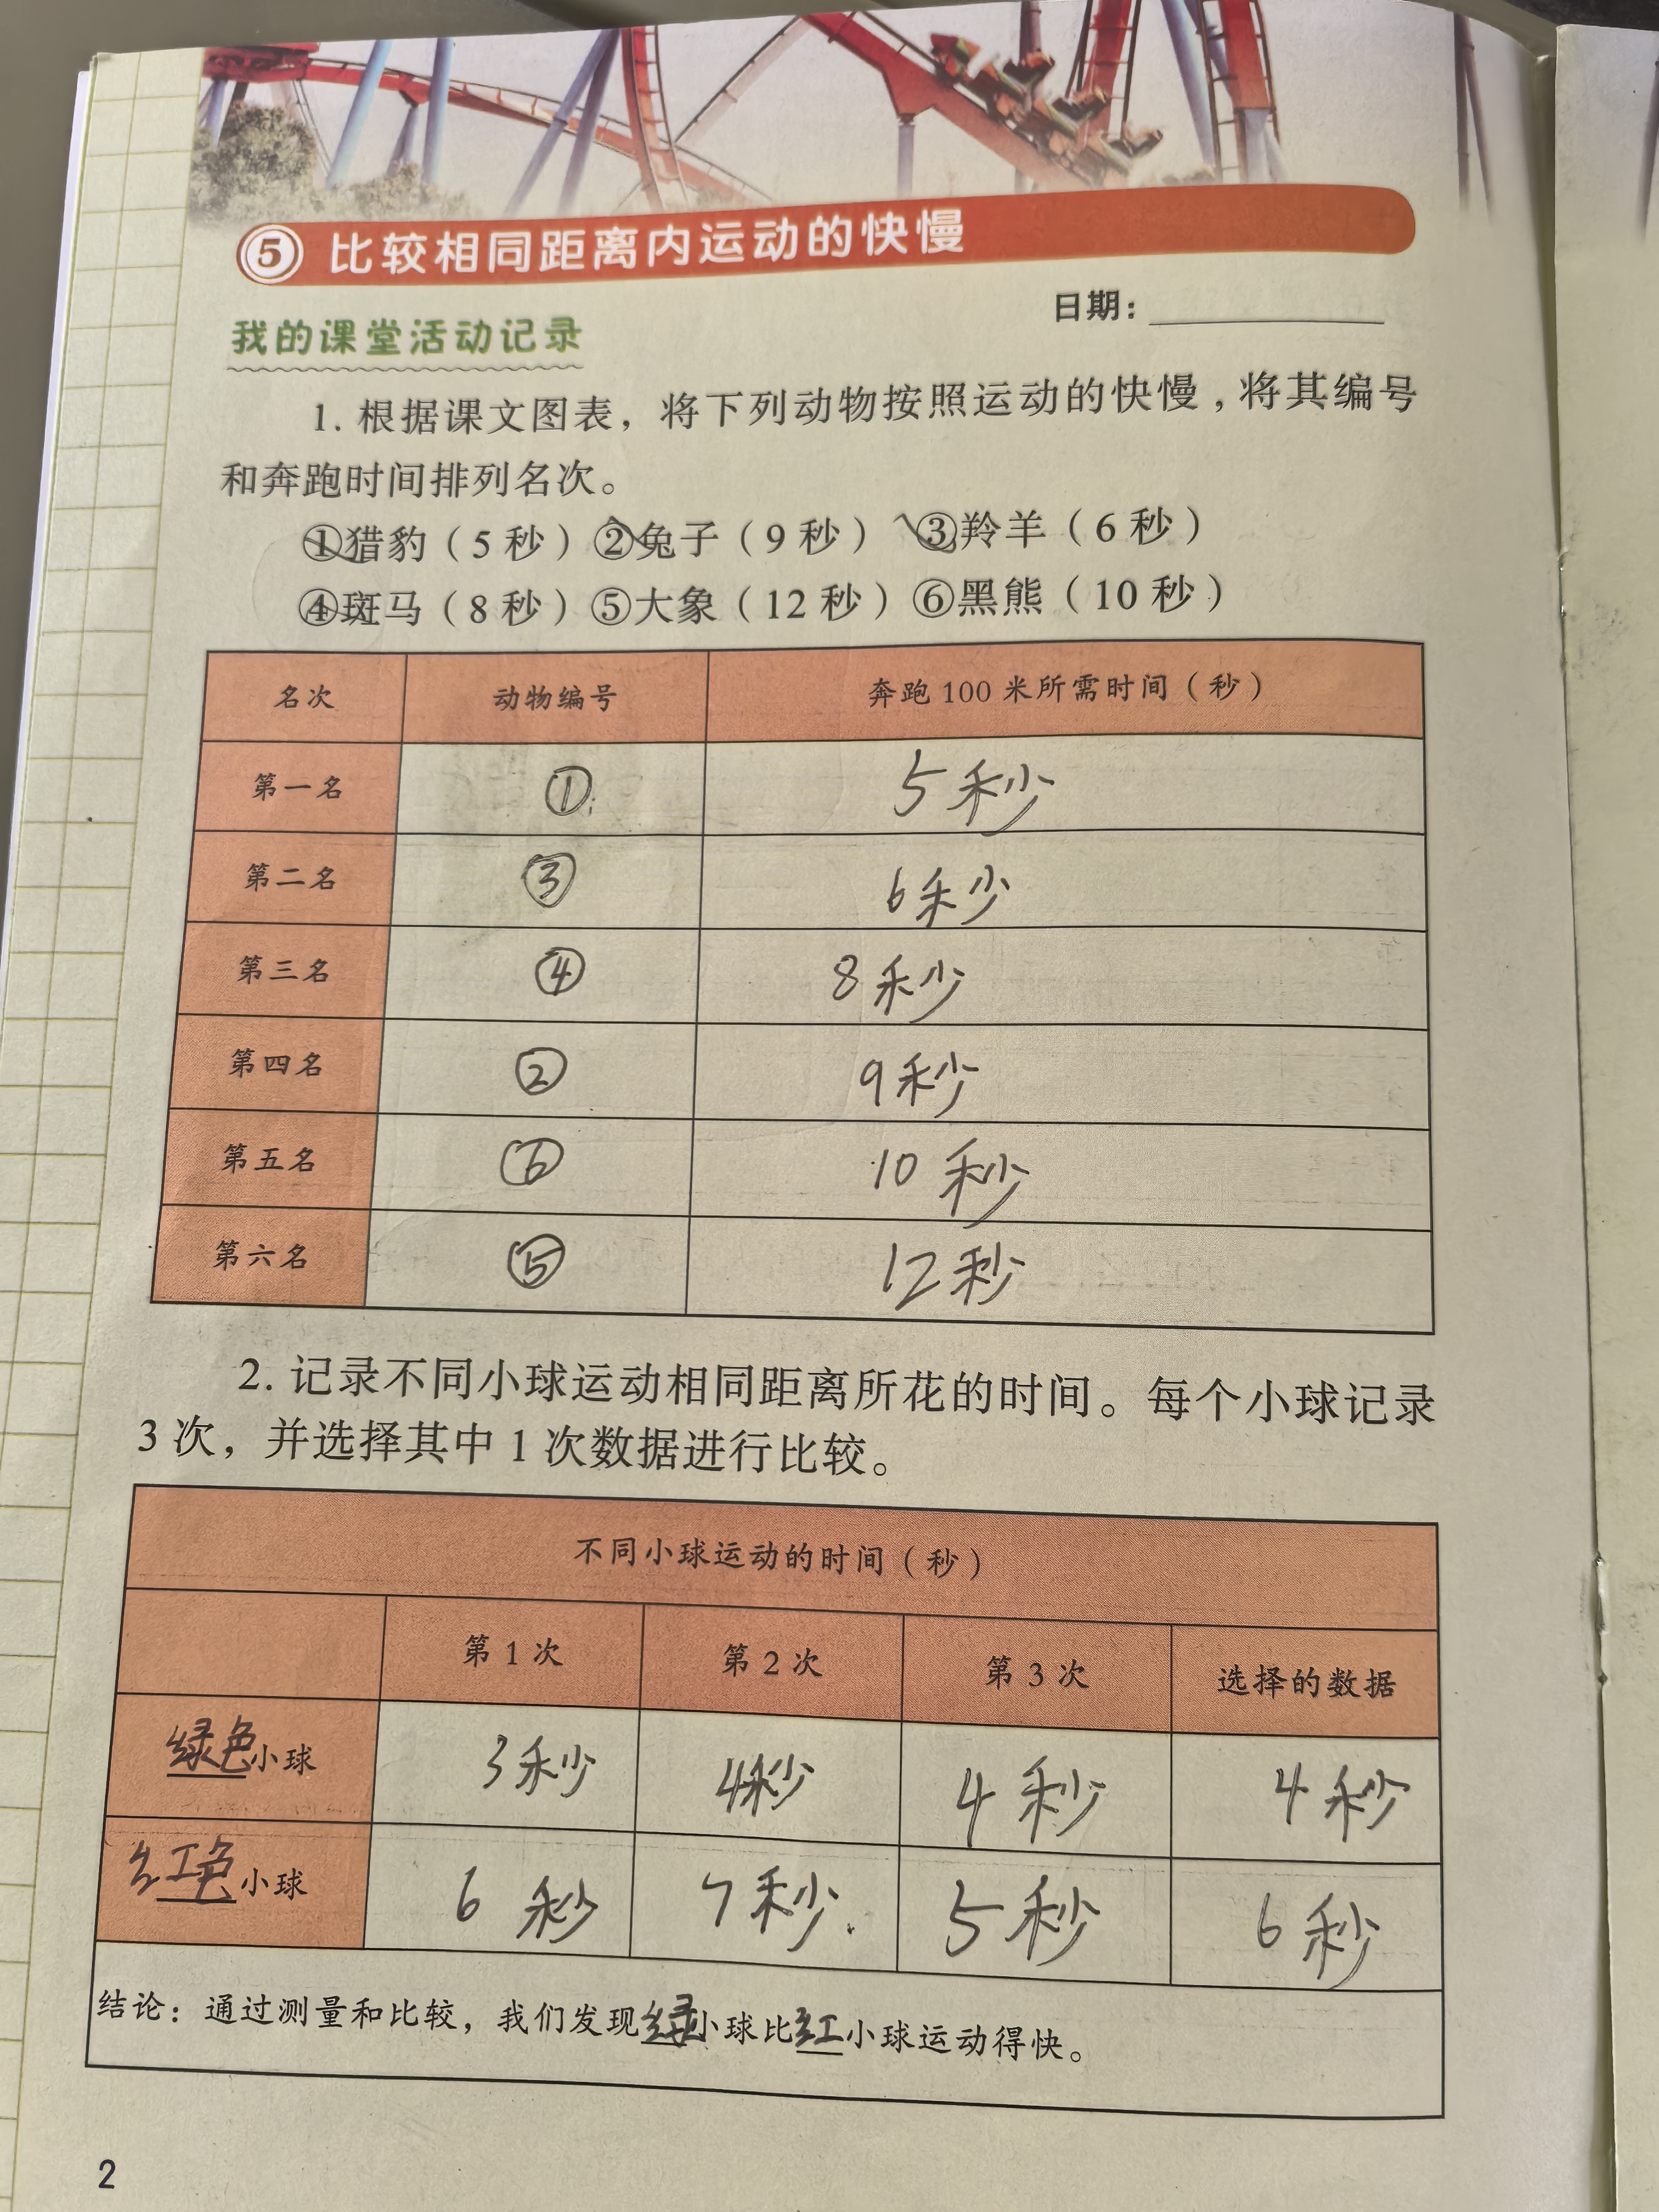 ⑤ 比较相同距离内运动的快慢
日期：
我的课堂活动记录
1. 根据课文图表，将下列动物按照运动的快慢，将其编号
和奔跑时间排列名次。
①猎豹（5 秒）②兔子（9 秒） ③羚羊（6 秒）
④斑马（8 秒）⑤大象（12 秒）⑥黑熊（10 秒）
名次 动物编号 奔跑 100 米所需时间（秒）
第一名 ① 5 秒
第二名 ③ 6秒
第三名 ④ 8 秒
第四名 ② 9 秒
第五名 ⑥ 10 秒
第六名 ⑤ 12 秒
2. 记录不同小球运动相同距离所花的时间。每个小球记录
3 次，并选择其中 1 次数据进行比较。
不同小球运动的时间（秒）
第 1 次 第 2 次 第 3 次 选择的数据
绿色小球 3 秒 4秒 4 秒 4 秒
红色小球 6 秒 7 秒. 5 秒 6 秒
结论：通过测量和比较，我们发现绿小球比红小球运动得快。
2